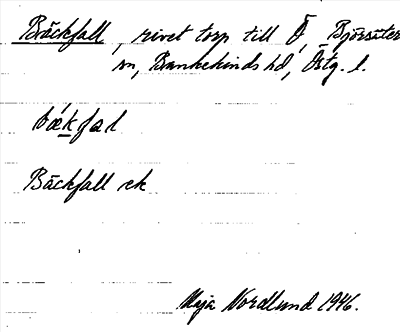 Bäckfall, rivet torp till Ö, Björsäter
sn, Bankekinds hd, Östg. l.
bækfal
Bäckfall ek
Maja Nordlund 1946.